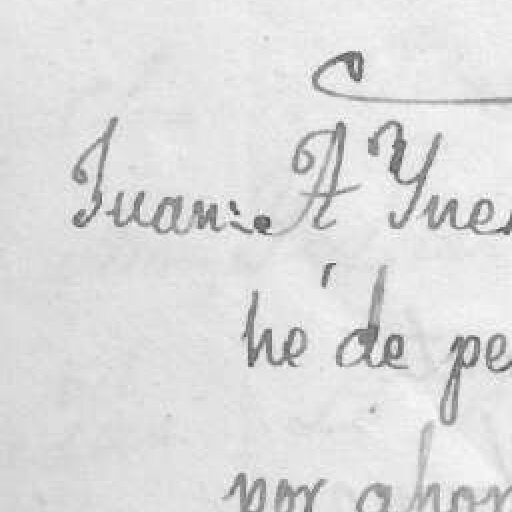 Juan: A Yner
he' de pe
por ahor